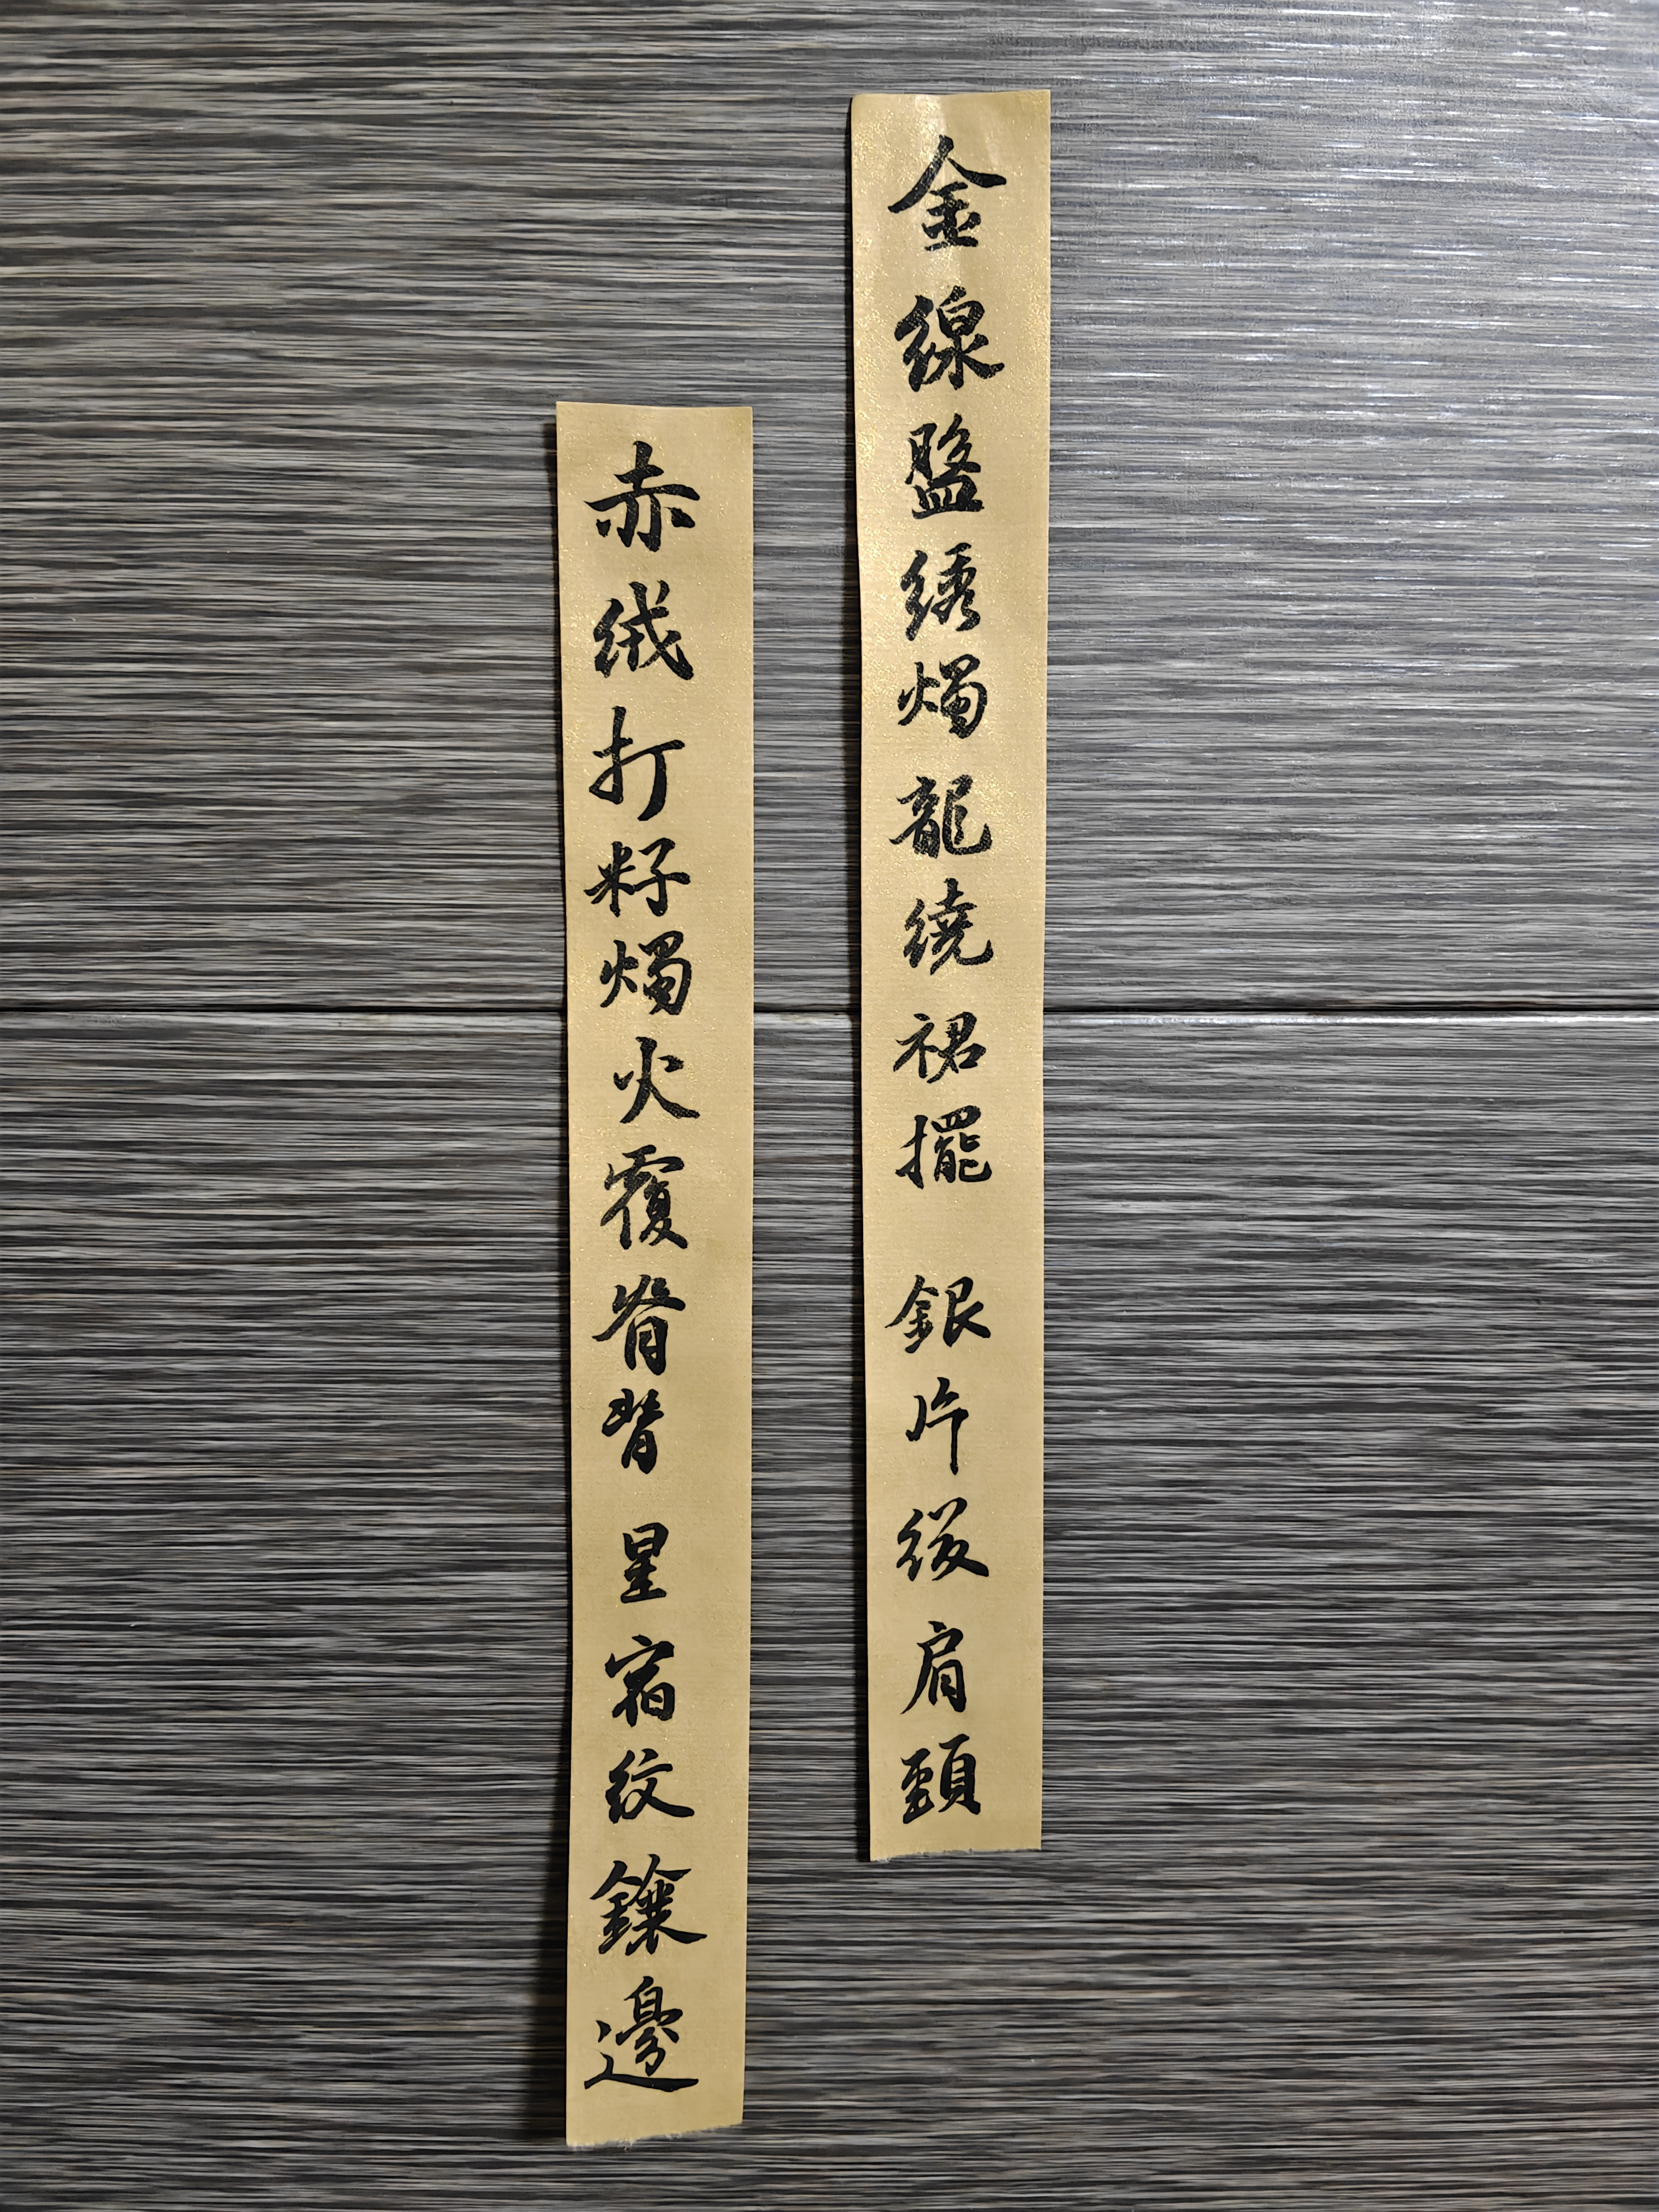 金線盤綉燭龍繞裙擺 銀片綴肩頸
赤绒打籽燭火覆脊背 星宿紋鑲邊